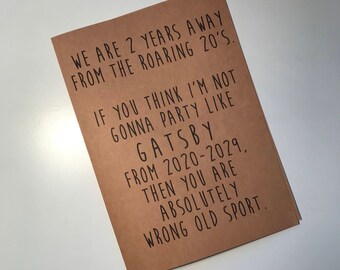 WE ARE 2 YEARS AWAY
FROM THE ROARING 20'S.
IF YOU THINK I'M NOT
GONNA PARTY LIKE
GATSBY
FROM 2020-2029,
THEN YOU ARE
ABSOLUTELY
WRONG OLD SPORT.